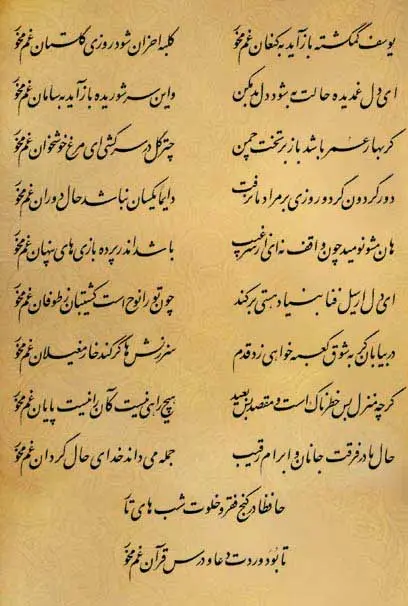 یوسف گمگشته بازآید به کنعان غم مخور کلبه احزان شود روزی گلستان غم مخور
ای دل غمدیده حالت به شود دل بد مکن واین سر شوریده بازآید به سامان غم مخور
گر بهار عمر باشد باز بر تخت چمن چتر گل در سر کشی ای مرغ خوشخوان غم مخور
دور گردون گر دو روزی بر مراد ما نرفت دایما یکسان نباشد حال دوران غم مخور
هان مشو نومید چون واقف نه ای از سر غیب باشد اندر پرده بازی های پنهان غم مخور
ای دل ار سیل فنا بنیاد هستی برکند چون تو را نوح است کشتیبان ز طوفان غم مخور
در بیابان گر به شوق کعبه خواهی زد قدم سرزنش ها گر کند خار مغیلان غم مخور
گرچه منزل بس خطرناک است و مقصد بس بعید هیچ راهی نیست کآن را نیست پایان غم مخور
حال ما در فرقت جانان و ابرام رقیب جمله می داند خدای حال گردان غم مخور
حافظا در کنج فقر و خلوت شب های تار
تا بُوَد وردت دعا و درس قرآن غم مخور